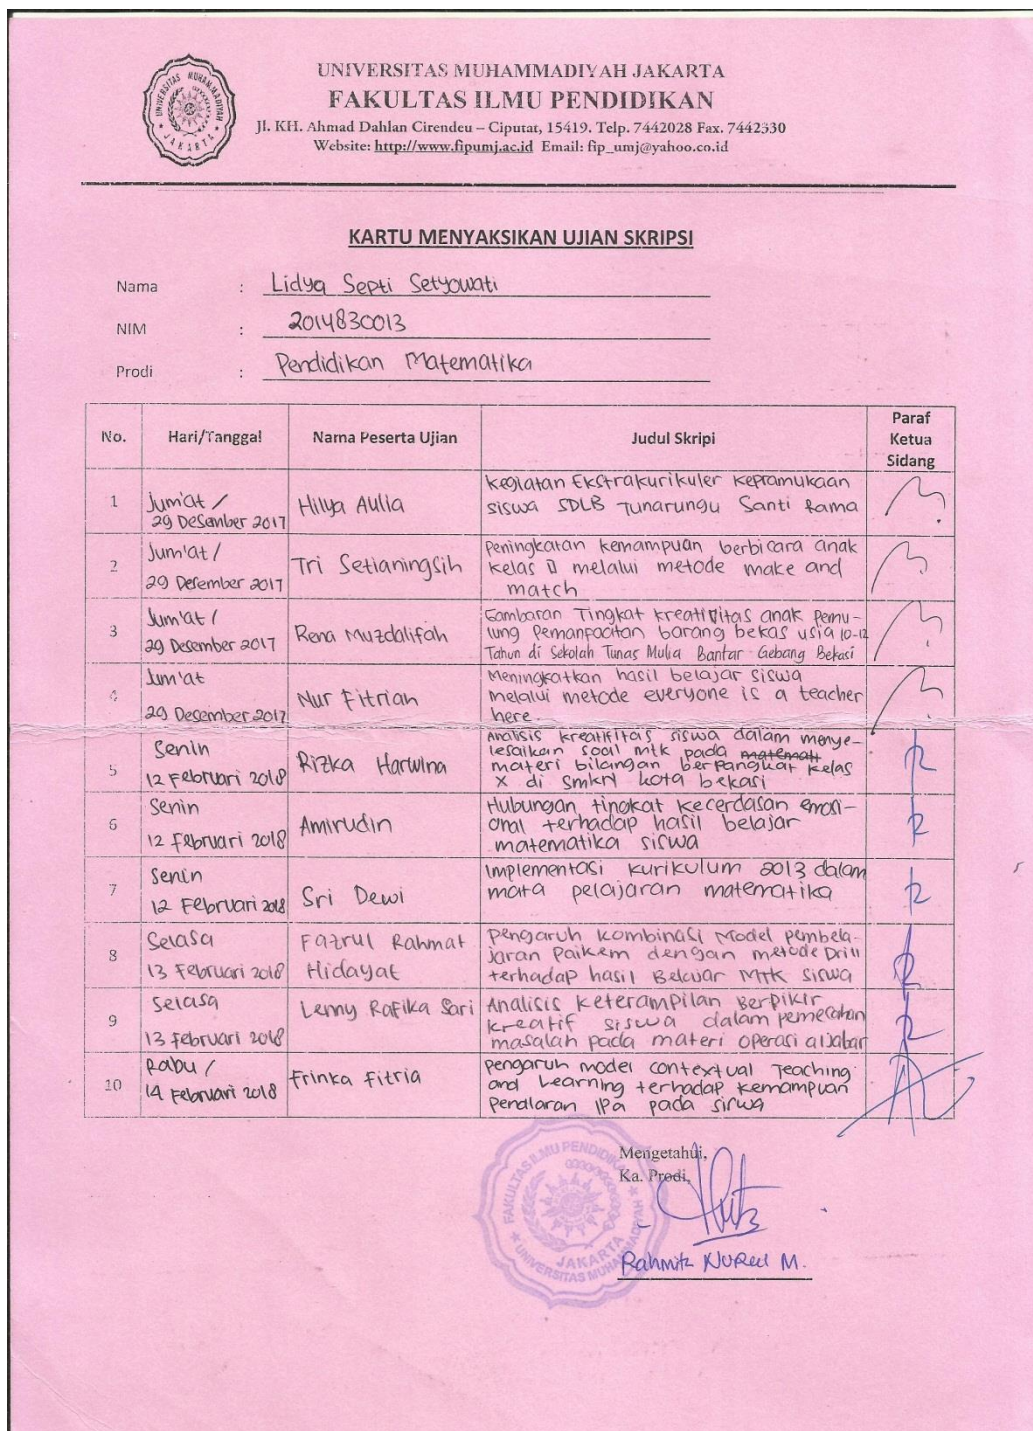 UNIVERSITAS MUHAMMADIYAH JAKARTA
FAKULTAS ILMU PENDIDIKAN
Jl. KH. Ahmad Dahlan Cirendeu – Ciputat, 15419. Telp. 7442028 Fax. 7442330
Website: http://www.fipumj.ac.id Email: fip_umj@yahoo.co.id
UNIVERSITAS MUHAMMADIYAH
JAKARTA
KARTU MENYAKSIKAN UJIAN SKRIPSI
Nama : Lidya Septi Setyowati
NIM : 2014830013
Prodi : Pendidikan Matematika
No. Hari/Tanggal Nama Peserta Ujian Judul Skripi Paraf Ketua Sidang
1 Jum'at / 29 Desember 2017 Hilya Aulia Kegiatan Ekstrakurikuler Kepramukaan
siswa SDLB Tunarungu Santi Rama
2 Jum'at / 29 Desember 2017 Tri Setianingsih Peningkatan kemampuan berbicara anak
kelas melalui metode make and
match
3 Jum'at / 29 Desember 2017 Rena Muzdalifah Gambaran Tingkat kreativitas anak Pemu-
lung Pemanpaatan barang bekas usia 10-12
Tahun di Sekolah Tunas Mulia Bantar Gebang Bekasi
4 Jum'at 29 Desember 2017 Nur Fitriah Meningkatkan hasil belajar siswa
melalui metode everyone is a teacher
here.
5 Senin 12 Februari 2018 Rizka Harwina Analisis kreatifitas siswa dalam menye-
lesaikan soal mtk pada matemati
materi bilangan berpangkat kelas
X di smkn kota bekasi
6 Senin 12 Februari 2018 Amirudin Hubungan tingkat kecerdasan emosi-
onal terhadap hasil belajar
matematika siswa
7 Senin 12 Februari 2018 Sri Dewi Implementasi kurikulum 2013 dalam
mata pelajaran matematika
8 Selasa 13 Februari 2018 Fazrul Rahmat Hidayat Pengaruh kombinasi Model pembela-
jaran Paikem dengan metode Drill
terhadap hasil Belajar MTK siswa
9 Selasa 13 Februari 2018 Lenny Rafika Sari Analisis keterampilan Berpikir
kreatif siswa dalam pemecahan
masalah pada materi operasi aljabar
10 Rabu / 14 Februari 2018 Frinka Fitria Pengaruh model contextual Teaching
and Learning terhadap kemampuan
Penalaran IPa pada siswa
Mengetahui,
Ka. Prodi,
FAKULTAS ILMU PENDIDIKAN
UNIVERSITAS MUHAMMADIYAH
JAKARTA
Rahmita Nurul M.